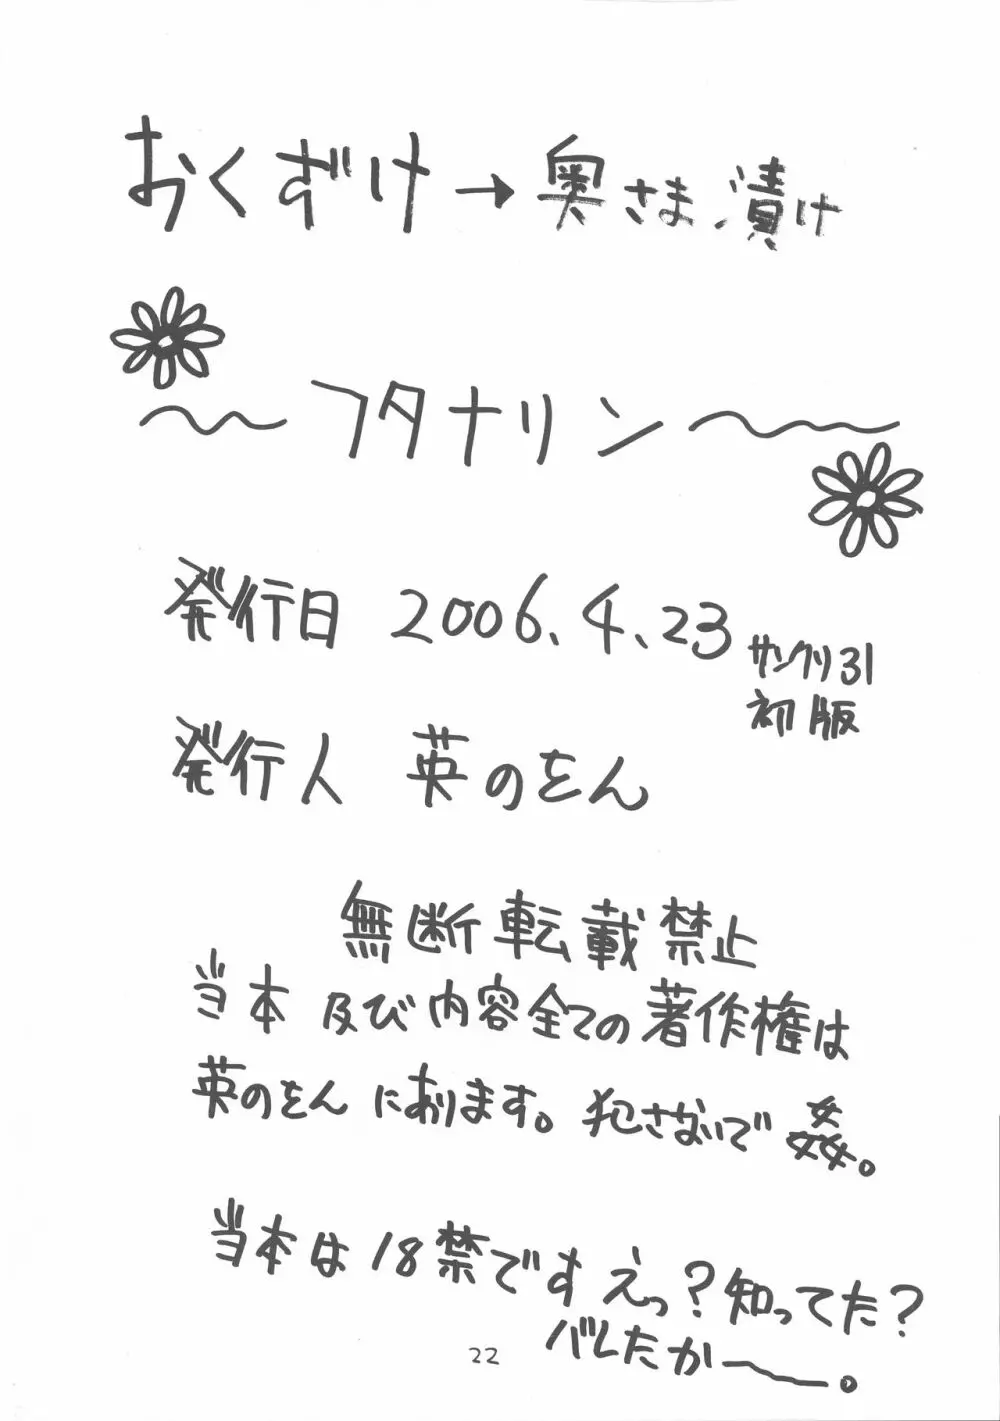 おくずけ→奥さま漬け
～フタナリン～
発行日 2006.4.23
サンクリ31
初版
発行人 英のをん
無断転載禁止
当本 及び内容全ての著作権は
英のをんにあります。犯さないで 姦。
当本は18禁ですえっ?知ってた?
バレたかー。
22